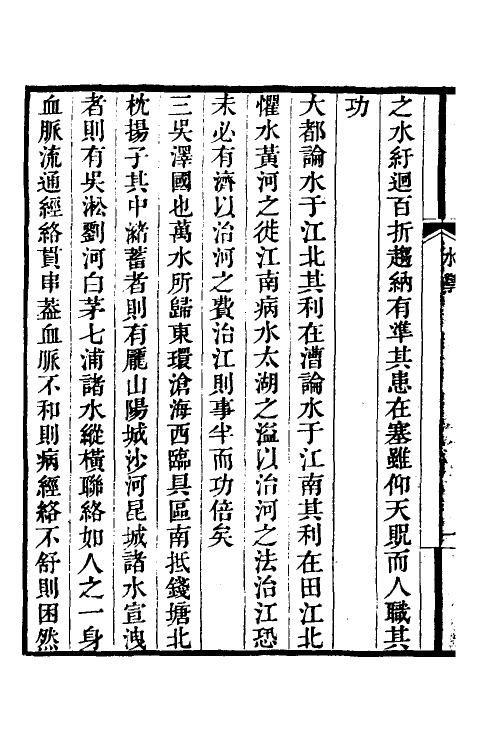 之水紆迴百折趨納有準其患在塞雖仰天貺而人職其
功
大都論水于江北其利在漕論水于江南其利在田江北
懼水黃河之徙江南病水太湖之溢以治河之法治江恐
未必有濟以治河之費治江則事半而功倍矣
三吳澤國也萬水所歸東環滄海西臨具區南抵錢塘北
枕揚子其中潴蓄者則有龎山陽城沙河昆城諸水宣洩
者則有吳淞劉河白茅七浦諸水縱橫聯絡如人之一身
血脈流通經絡貫串葢血脈不和則病經絡不舒則困然